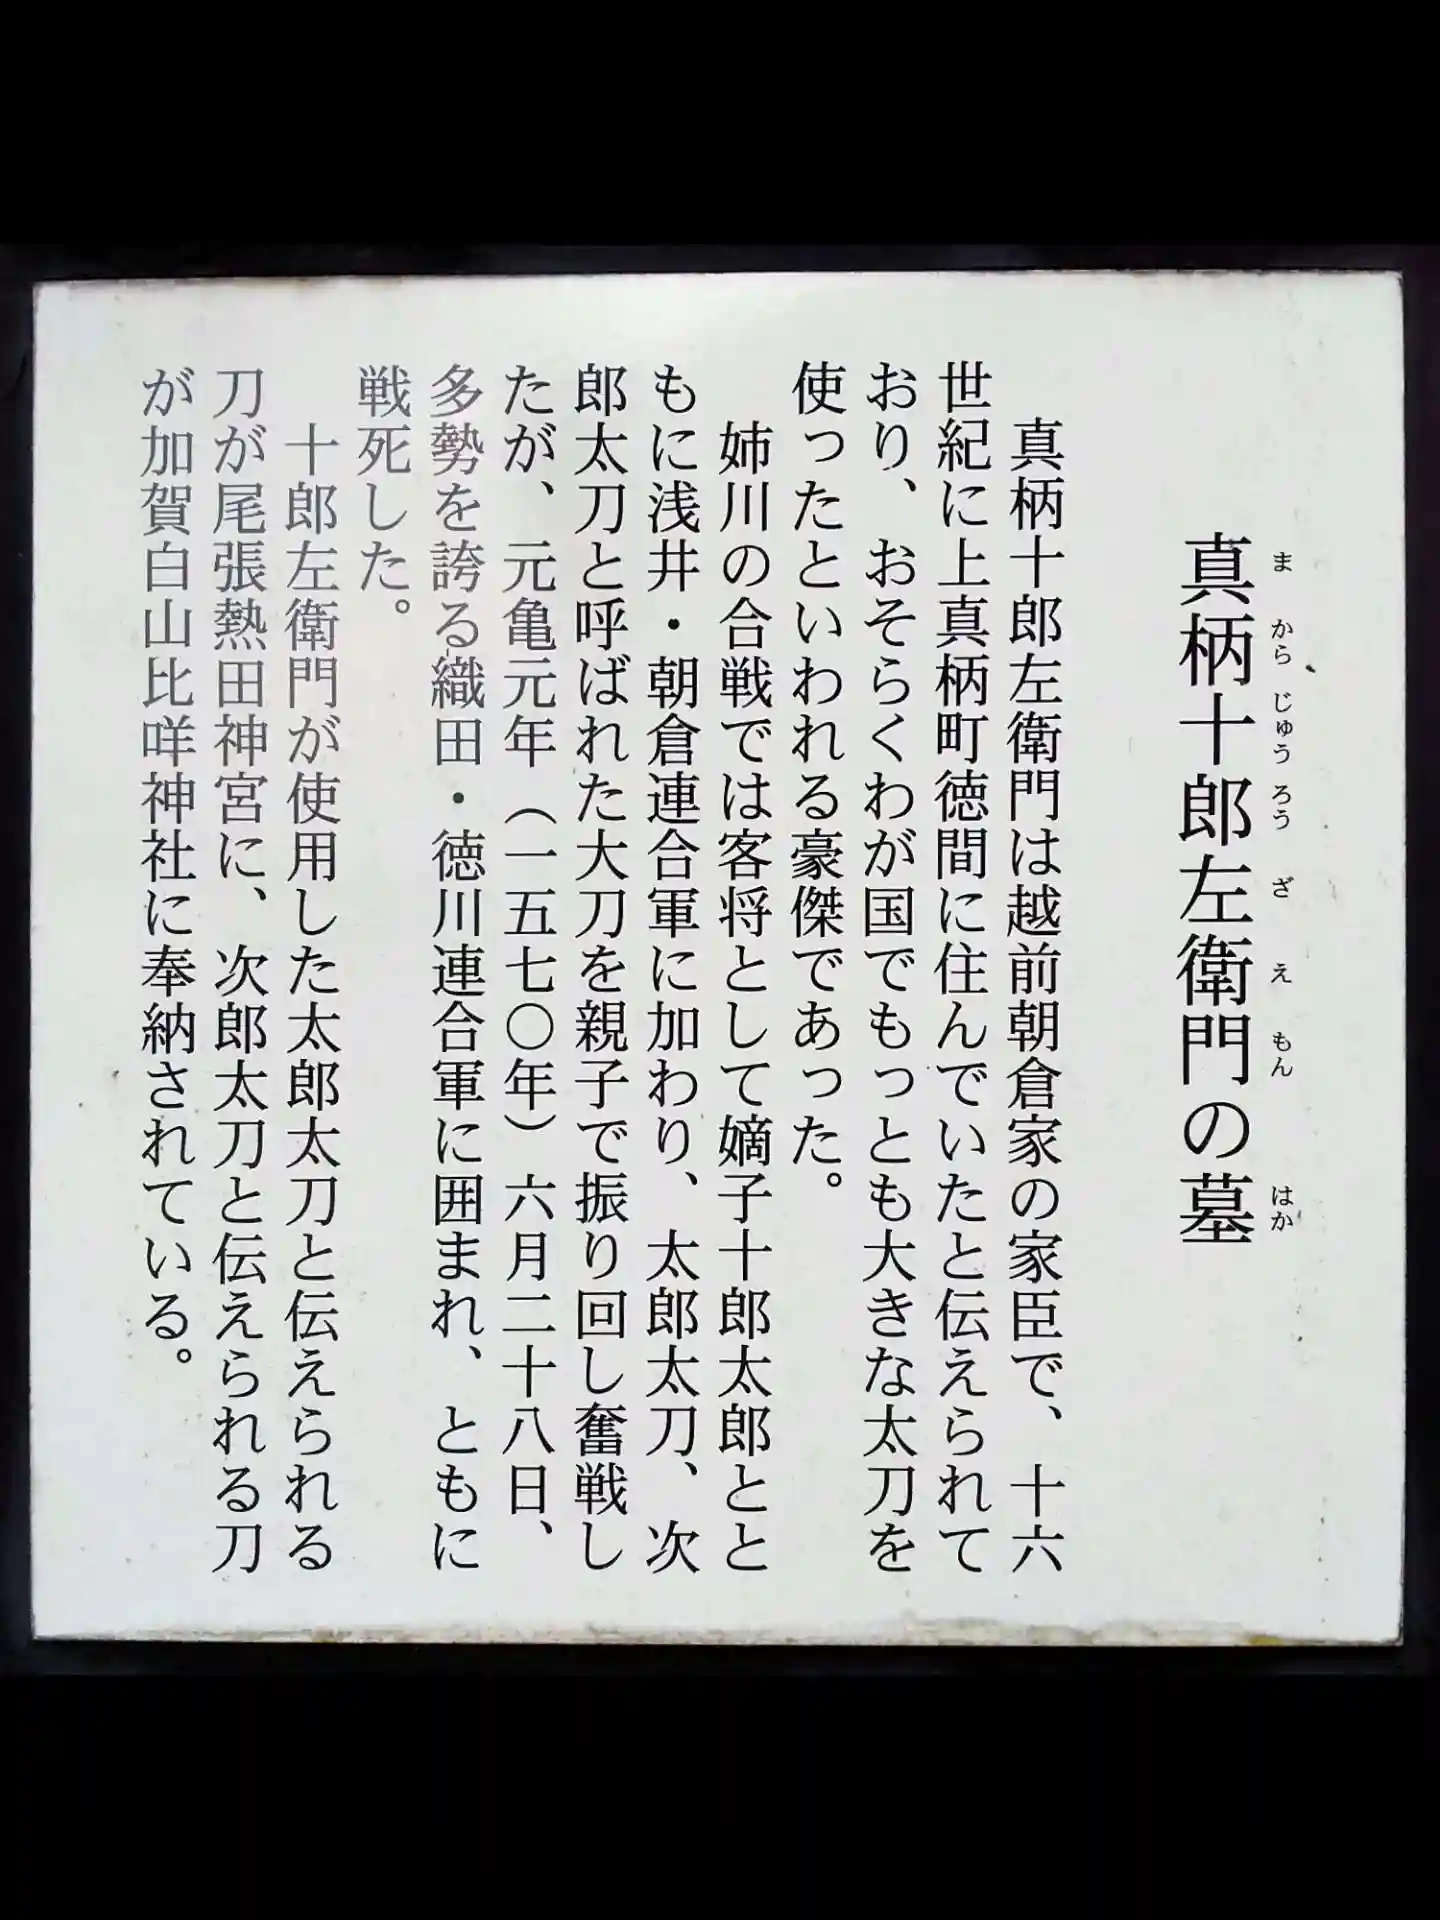 真柄十郎左衛門の墓
まからじゅうろうざえもんはか
真柄十郎左衛門は越前朝倉家の家臣で、十六
世紀に上真柄町徳間に住んでいたと伝えられて
おり、おそらくわが国でもっとも大きな太刀を
使ったといわれる豪傑であった。
姉川の合戦では客将として嫡子十郎太郎とと
もに浅井・朝倉連合軍に加わり、太郎太刀、次
郎太刀と呼ばれた大刀を親子で振り回し奮戦し
たが、元亀元年（一五七〇年）六月二十八日、
多勢を誇る織田・徳川連合軍に囲まれ、ともに
戦死した。
十郎左衛門が使用した太郎太刀と伝えられる
刀が尾張熱田神宮に、次郎太刀と伝えられる刀
が加賀白山比咩神社に奉納されている。